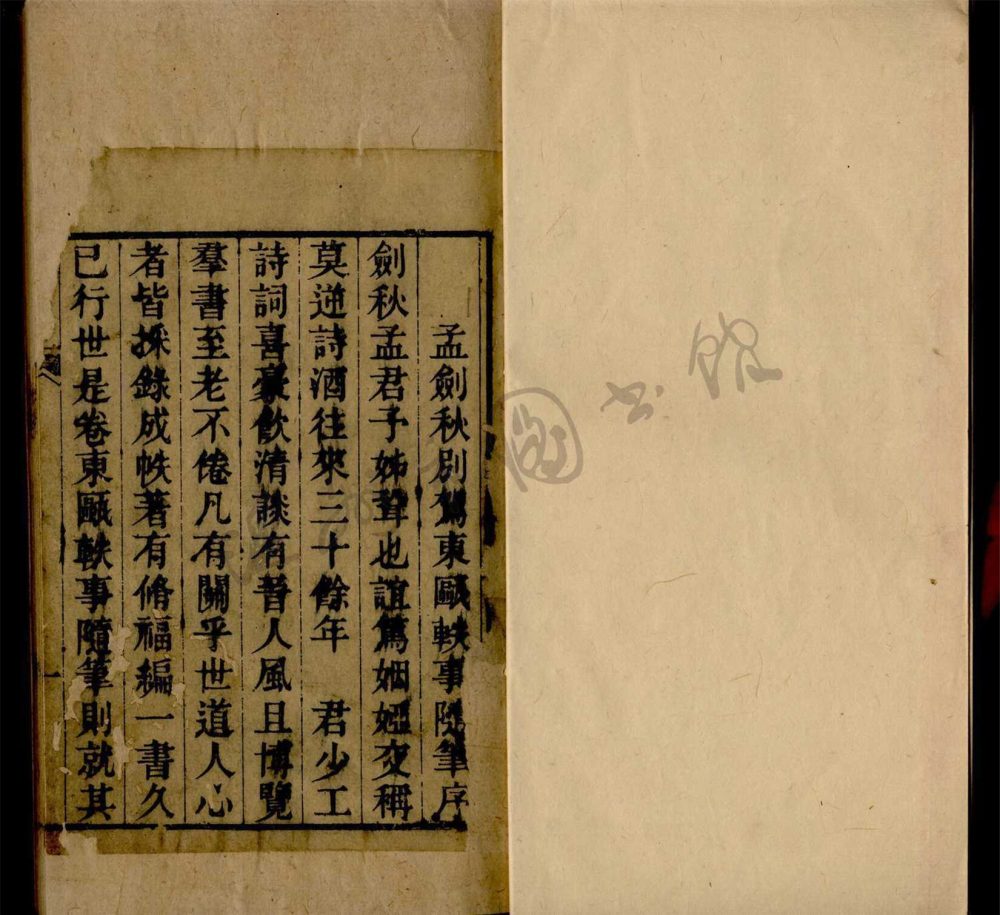 孟劍秋別駕東甌軼事隨筆序
劍秋孟君予姊壻也誼篤姻婭交稱
莫逆詩酒往來三十餘年　君少工
詩詞喜豪飲清談有晉人風且博覽
羣書至老不倦凡有關乎世道人心
者皆採錄成帙著有脩福編一書久
已行世是卷東甌軼事隨筆則就其
一